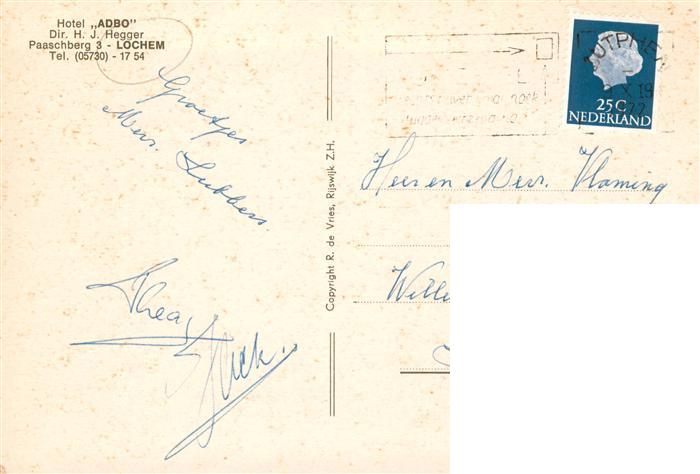 Hotel „ADBO"
Dir. H. J. Hegger
Paaschberg 3 - LOCHEM
Tel. (05730) - 17 54
Groetjes
Mevr. Lubbers.
Thea
Copyright R. de Vries, Rijswijk Z.H.
ZUTPHEN
25 C
NEDERLAND
Heer en Mevr. Vlaming
Wille